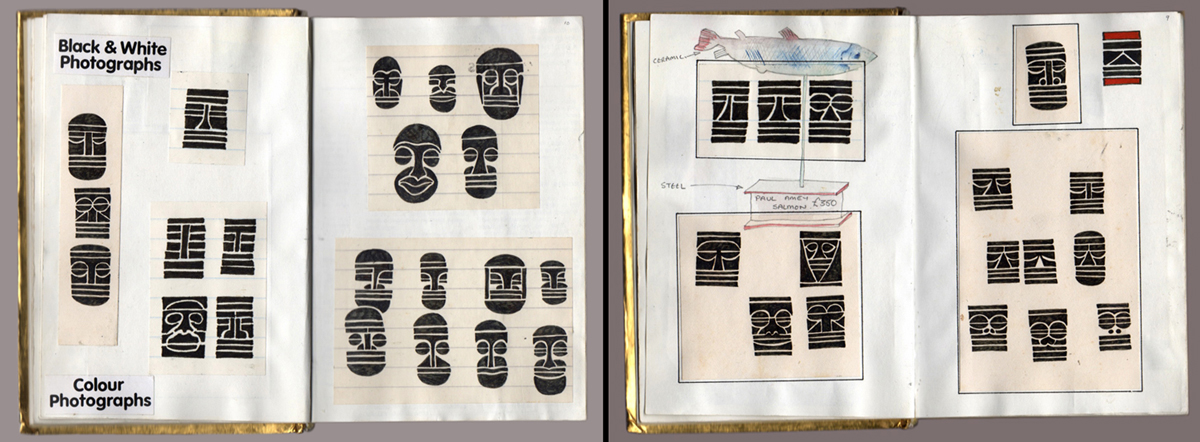 Black & White
Photographs
Colour
Photographs
CERAMIC
STEEL
PAUL AMEY
SALMON £350